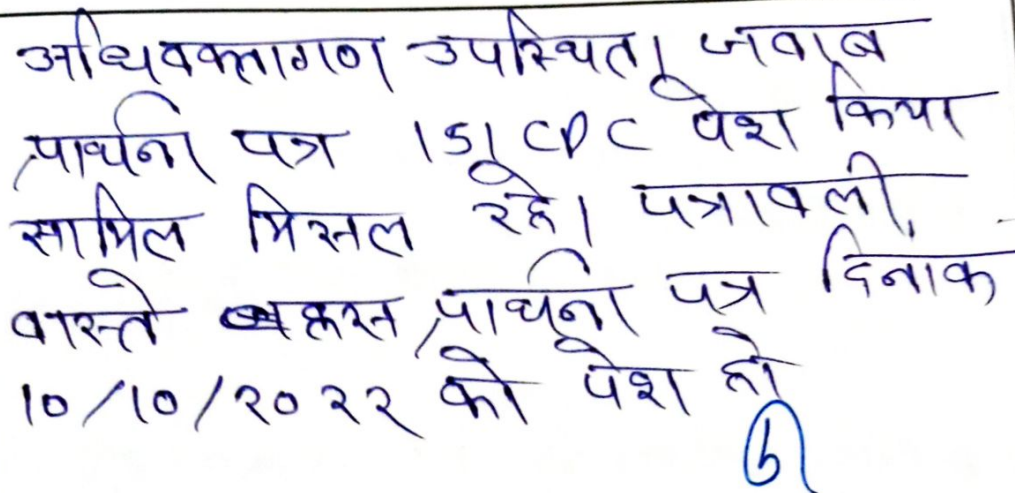 अधिवक्तागण उपस्थित। जवाब
प्रार्थना पत्र 151 CPC पेश किया
सामिल मिसल रहे। पत्रावली
वास्ते बहस प्रार्थना पत्र दिनांक
10/10/2022 को पेश हो